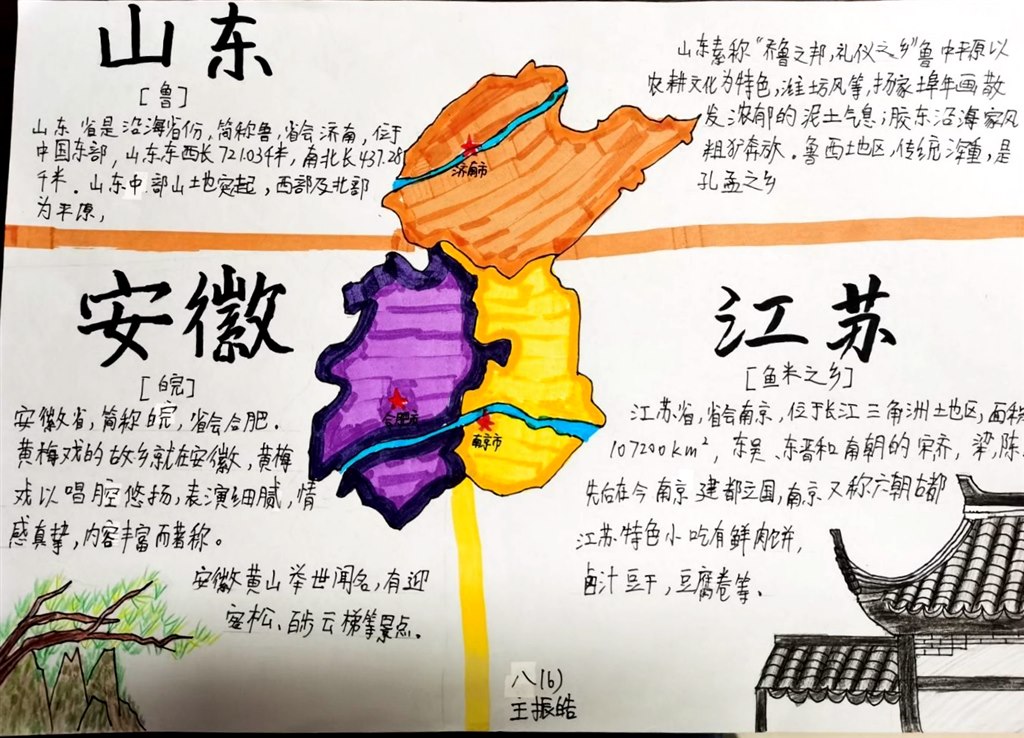 山东
[鲁]
山东省是沿海省份,简称鲁,省会济南,位于
中国东部,山东东西长721.03千米,南北长437.28
千米.山东中部山土地突起,西部及北部
为平原,
山东素称“齐鲁之邦,礼仪之乡”鲁中平原以
农耕文化为特色,潍坊风筝,扬家埠年画,散
发浓郁的泥土气息;胶东沿海家风
粗犷奔放.鲁西土地区,传统淳重,是
孔孟之乡
济南市
安徽
[皖]
安徽省,简称皖,省会合肥.
黄梅戏的故乡就在安徽,黄梅
戏以唱腔悠扬,表演细腻,情
感真挚,内容丰富而著称。
安徽黄山举世闻名,有迎
客松、百步云梯等景点.
合肥市
南京市
江苏
[鱼米之乡]
江苏省,省会南京,位于长江三角洲土地区,面积
107200km²,东吴、东晋和南朝的宋齐,梁,陈.
先后在今南京建都立国,南京又称六朝古都
江苏特色小吃有鲜肉饼,
卤汁豆干,豆腐卷等.
八(6)
主振皓